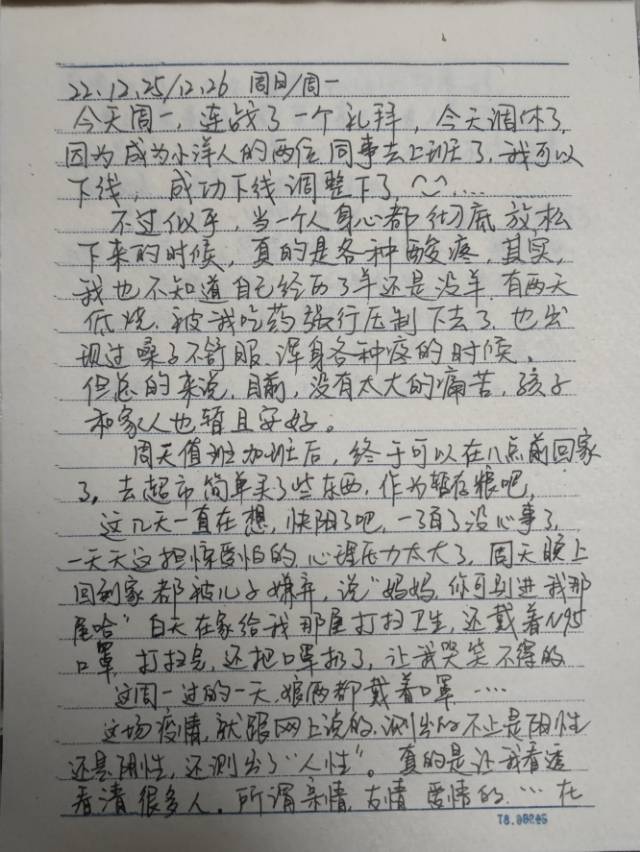 22.12.25/12.26 周日/周一
今天周一,连战了一个礼拜,今天调休了,
因为成为小洋人的两位同事去上班了,我可以
下线,成功下线调整下了^_^....
不过似乎,当一个人身心都彻底放松
下来的时候,真的是各种酸疼,其实,
我也不知道自己经历了羊还是没羊,有两天
低烧,被我吃药强行压制下去了,也出
现过嗓子不舒服,浑身各种疼的时候,
但总的来说,目前,没有太大的痛苦,孩子
和家人也暂且安好。
周天值班加班后,终于可以在八点前回家
了,去超市简单买了些东西,作为暂存粮吧,
这几天一直在想,快阳了吧,一了百了没心事了,
一天天这担惊受怕的,心理压力太大了,周天晚上
回到家都被儿子嫌弃,说"妈妈,你可别进我那
屋哈"白天在家给我那屋打扫卫生,还戴着N95
口罩,打扫完,还把口罩扔了,让我哭笑不得的
这周一过的一天,娘两都戴着口罩....
这场疫情,就跟网上说的,测出的不止是阳性
还是阴性,还测出了"人性"。真的是让我看透
看清很多人,所谓亲情,友情,爱情的....在
T8.98246